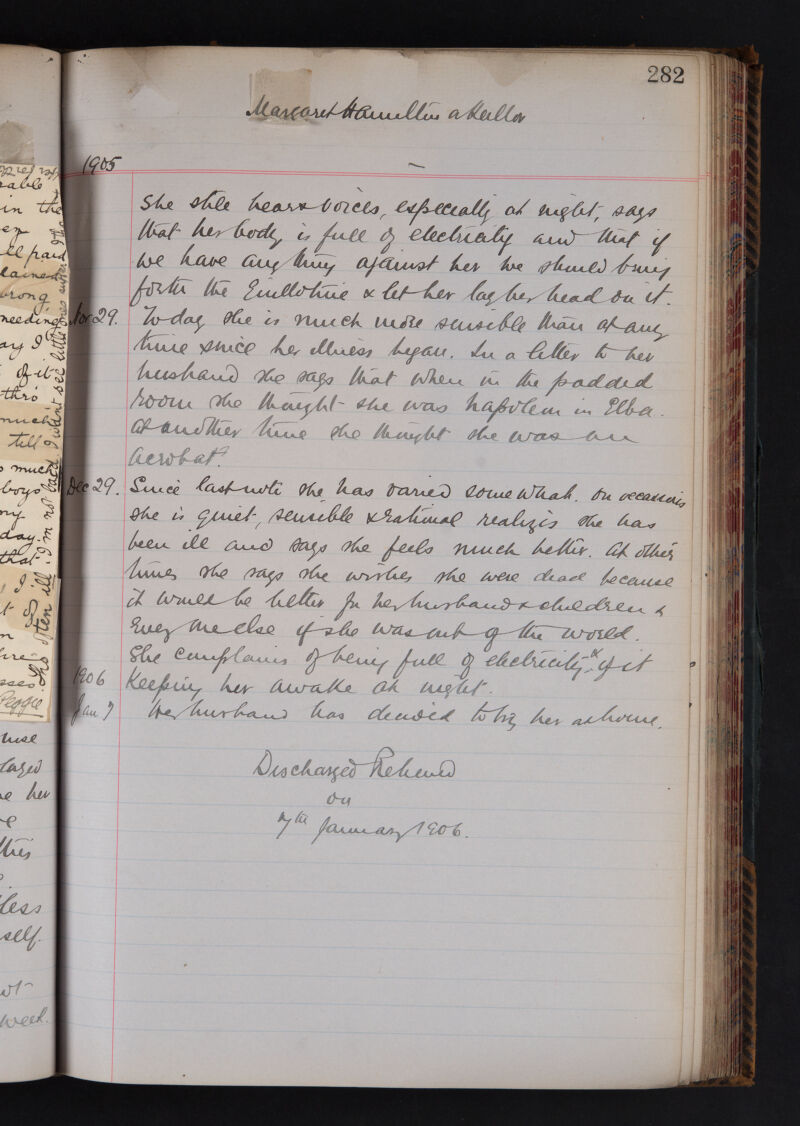 282
Margaret Hamilton a Keillor
1905
She still hears voices, especially at night, says
that her body is full of electricity and that if
we have anything against her we should bring
forth the Guillotine & let her lay her head on it.
Nov 29. Today she is much more sensible than at any
time since her illness began. In a letter to her
husband she says that when in the padded
room she thought she was Napoleon in Elba.
At another time she thought she was an
acrobat.
Dec 29. Since last note she has varied somewhat. On occasions
she is quiet, sensible & rational realizes she has
been ill and says she feels much better. At other
times she says she wishes she were dead because
it would be better for her husband & children &
every one else if she was out of the world.
She complains of being full of electricity & of it
1906 keeping her awake at night.
Jan 7 Her husband has decided to try her at home.
Discharged Relieved
on
7th January 1906.
sable
in the
rong
needing
ay I
of it
thro'
much
till
much
boys
my
day.
that
I
Peggie
I'm not bad
often ill
her
less
self.
week.